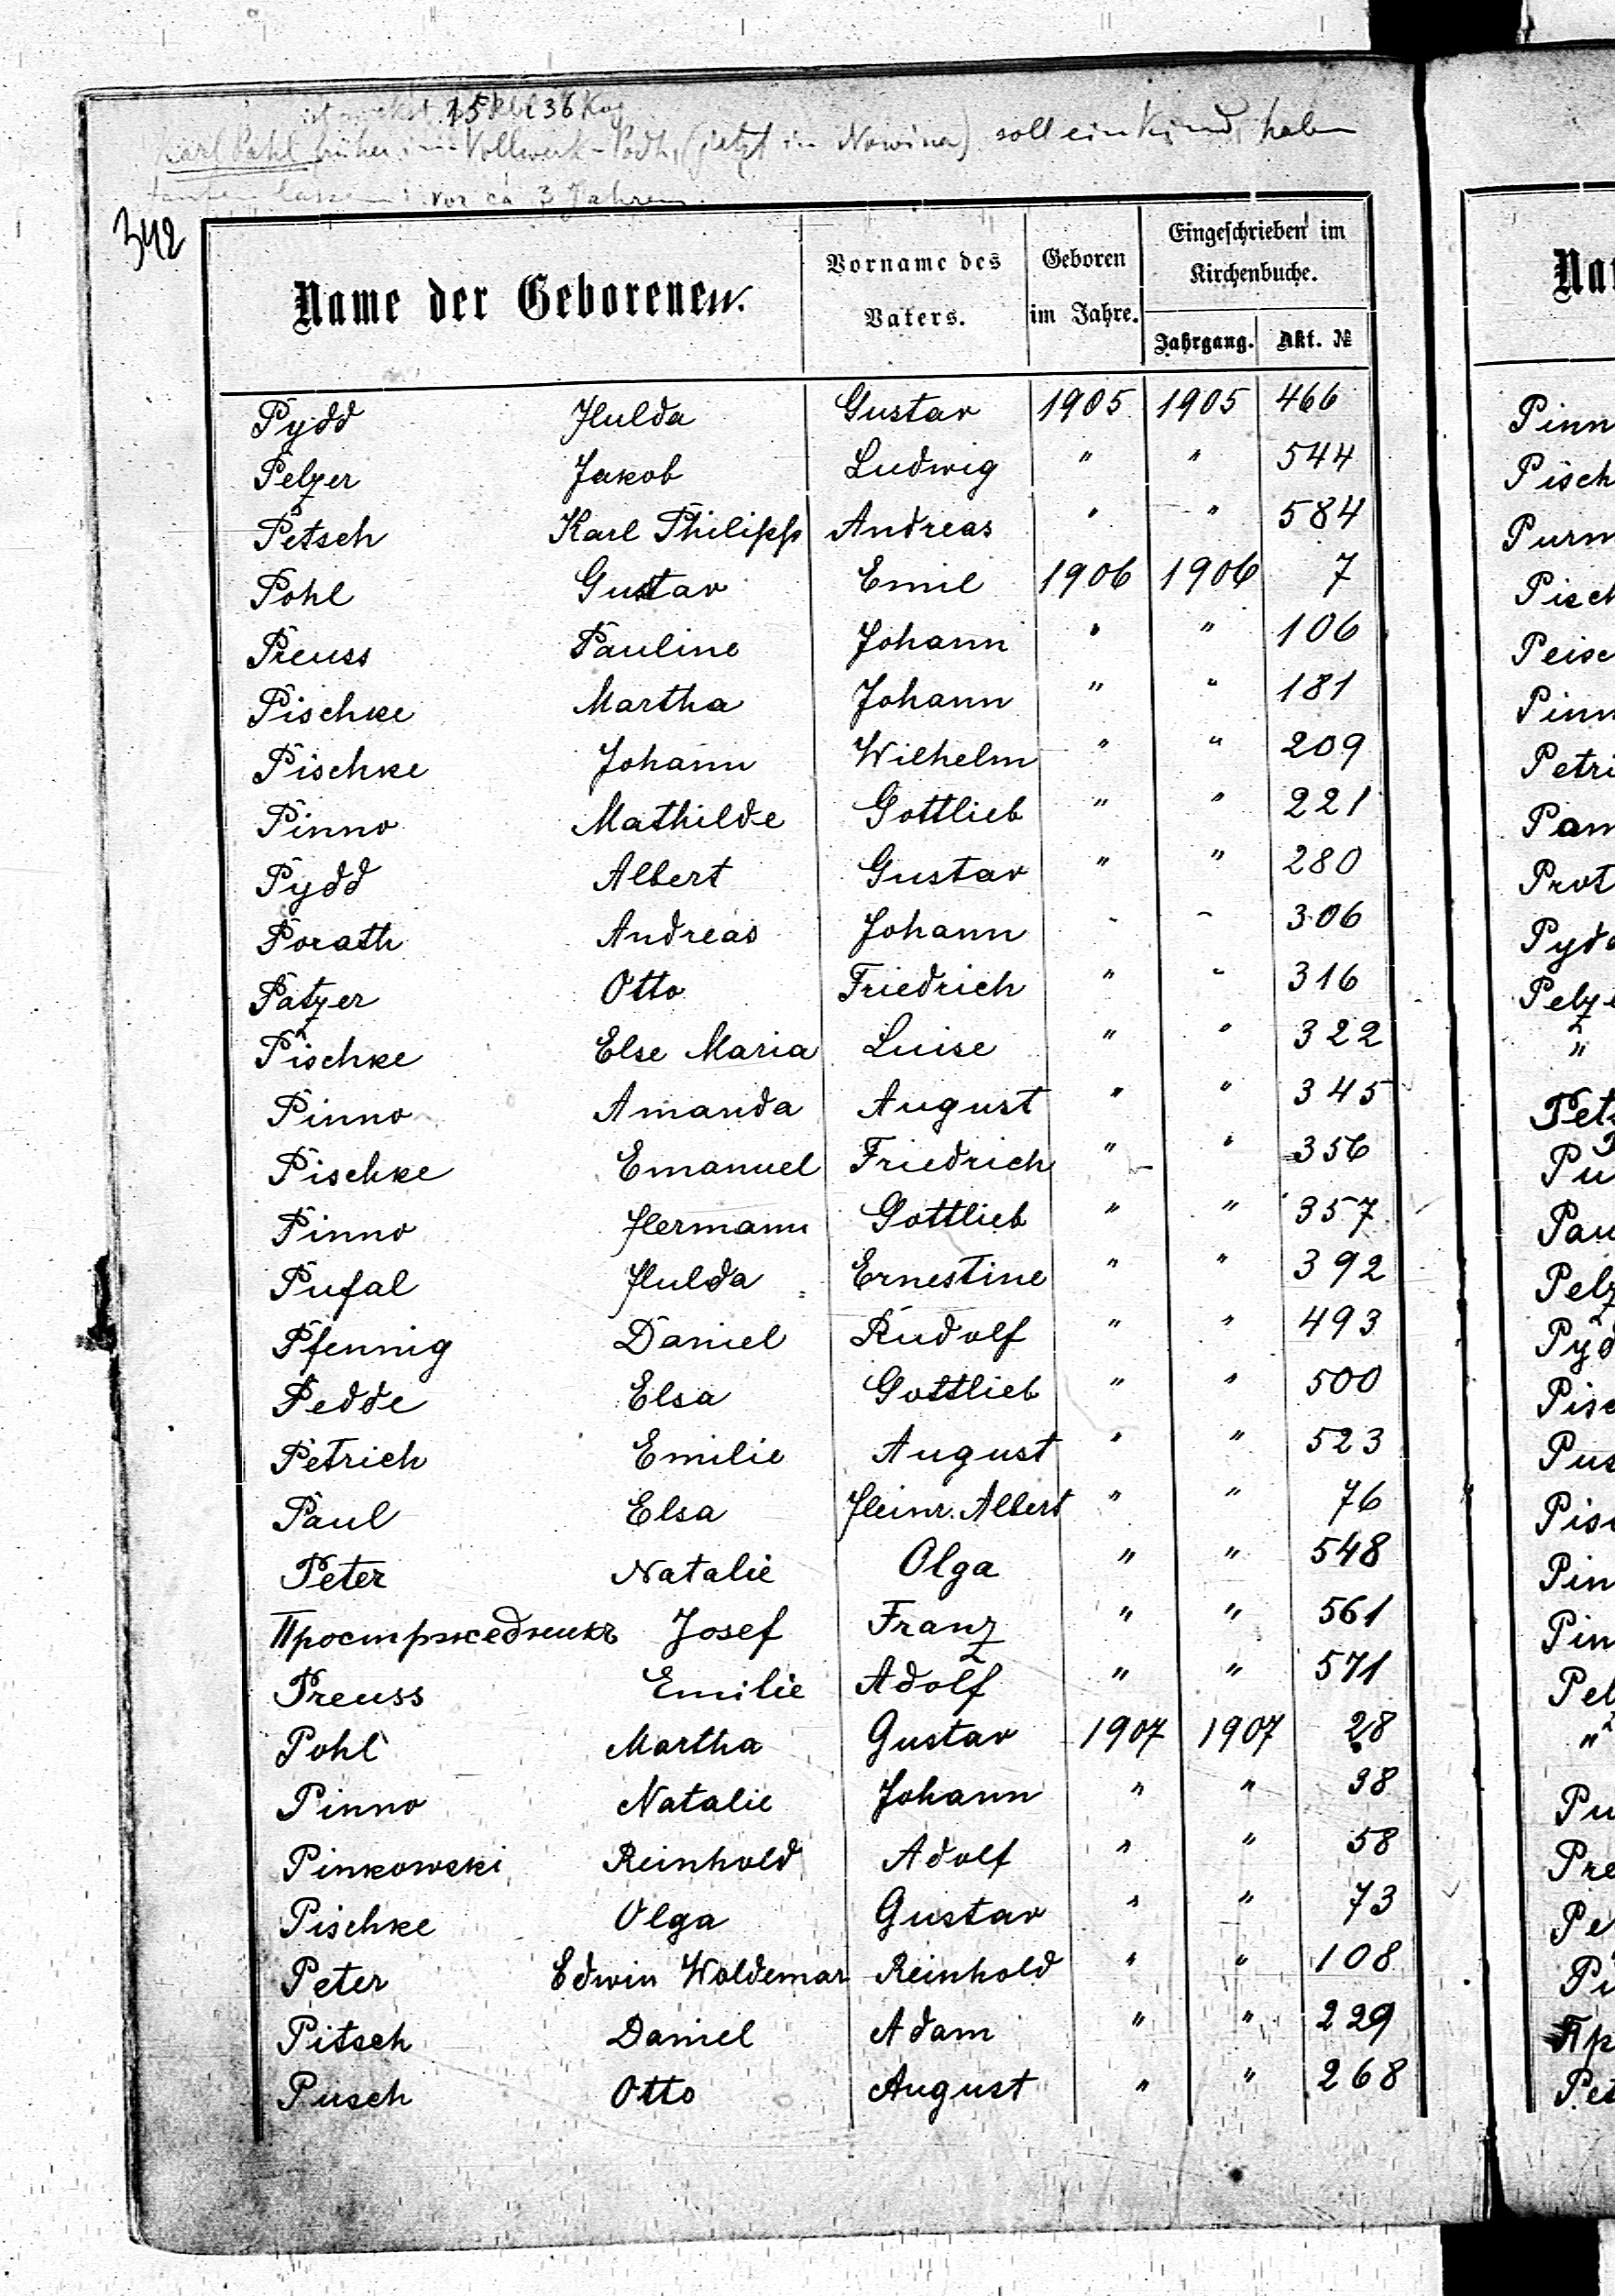 15 Rbl 36 Kop
Karl Pahl früher in Vollwerk-Podh, (jetzt in Nowina) soll ein Kind haben
taufen lassen vor ca 3 Jahren.
342
Name der Geborenen. Vorname des Vaters. Geboren im Jahre. Eingeschrieben im Kirchenbuche.
Jahrgang. Akt. №
Pydd Hulda Gustav 1905 1905 466
Pelzer Jakob Ludwig " " 544
Petsch Karl Philipp Andreas " " 584
Pohl Gustav Emil 1906 1906 7
Preuss Pauline Johann " " 106
Pischke Martha Johann " " 181
Pischke Johann Wilhelm " " 209
Pinno Mathilde Gottlieb " " 221
Pydd Albert Gustav " " 280
Porath Andreas Johann " " 306
Patzer Otto Friedrich " " 316
Pischke Else Maria Luise " " 322
Pinno Amanda August " " 345
Pischke Emanuel Friedrich " " 356
Pinno Hermann Gottlieb " " 357
Pufal Hulda Ernestine " " 392
Pfennig Daniel Rudolf " " 493
Pedde Elsa Gottlieb " " 500
Petrich Emilie August " " 523
Paul Elsa Heinr. Albert " " 76
Peter Natalie Olga " " 548
Простржедникъ Josef Franz " " 561
Preuss Emilie Adolf " " 571
Pohl Martha Gustav 1907 1907 28
Pinno Natalie Johann " " 38
Pinkowski Reinhold Adolf " " 58
Pischke Olga Gustav " " 73
Peter Edwin Woldemar Reinhold " " 108
Pitsch Daniel Adam " " 229
Pusch Otto August " " 268
Na
Pinn
Pisch
Purm
Pisch
Peisc
Pinn
Petri
Pam
Prot
Pyd
Pelze
"
Pet
Pu
Pau
Pelz
Pyd
Pisc
Pus
Pis
Pin
Pin
Pel
"
Pu
Pre
Pe
Pi
Пр
Pet